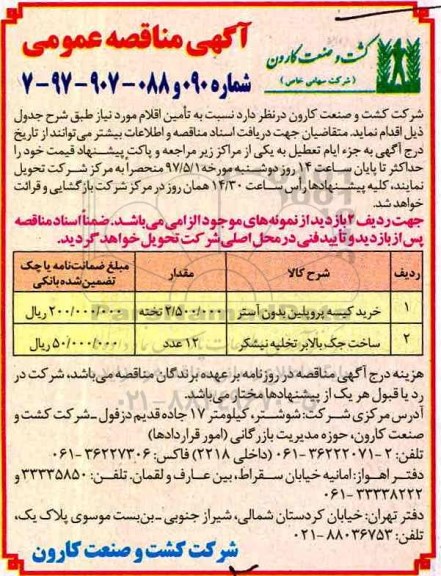 کشت و صنعت کارون
(شرکت سهامی خاص)
آگهی مناقصه عمومی
شماره ۰۹۰ و ۰۸۸-۹۰۷-۹۷-۷
شرکت کشت و صنعت کارون درنظر دارد نسبت به تأمین اقلام مورد نیاز طبق شرح جدول
ذیل اقدام نماید. متقاضیان جهت دریافت اسناد مناقصه و اطلاعات بیشتر می‌توانند از تاریخ
درج آگهی به جزء ایام تعطیل به یکی از مراکز زیر مراجعه و پاکت پیشنهاد قیمت خود را
حداکثر تا پایان ساعت ۱۴ روز دوشنبه مورخه ۹۷/۵/۱ منحصراً به مرکز شرکت تحویل
نمایند، کلیه پیشنهادها رأس ساعت ۱۴/۳۰ همان روز در مرکز شرکت بازگشایی و قرائت
خواهد شد.
جهت ردیف ۲ بازدید از نمونه‌های موجود الزامی می‌باشد. ضمناً اسناد مناقصه
پس از بازدید و تأیید فنی در محل اصلی شرکت تحویل خواهد گردید.
ردیف شرح کالا مقدار مبلغ ضمانت‌نامه یا چک
تضمین‌شده بانکی
۱ خرید کیسه پروپلین بدون آستر ۲/۵۰۰/۰۰۰ تخته ۲۰۰/۰۰۰/۰۰۰ ریال
۲ ساخت جک بالابر تخلیه نیشکر ۱۲ عدد ۵۰/۰۰۰/۰۰۰ ریال
هزینه درج آگهی مناقصه در روزنامه بر عهده برندگان مناقصه می‌باشد، شرکت در
رد یا قبول هر یک از پیشنهادها مختار می‌باشد.
آدرس مرکزی شرکت: شوشتر، کیلومتر ۱۷ جاده قدیم دزفول - شرکت کشت و
صنعت کارون، حوزه مدیریت بازرگانی (امور قراردادها)
تلفن: ۲-۳۶۲۲۲۰۷۱-۰۶۱ (داخلی ۲۲۱۸) فاکس: ۳۶۲۲۷۳۰۶-۰۶۱
دفتر اهواز: امانیه خیابان سقراط، بین عارف و لقمان. تلفن: ۳۳۳۳۵۸۵۰ و
۳۳۳۳۸۲۲۲-۰۶۱
دفتر تهران: خیابان کردستان شمالی، شیراز جنوبی - بن‌بست موسوی پلاک یک،
تلفن: ۸۸۰۳۶۷۵۳-۰۲۱
شرکت کشت و صنعت کارون